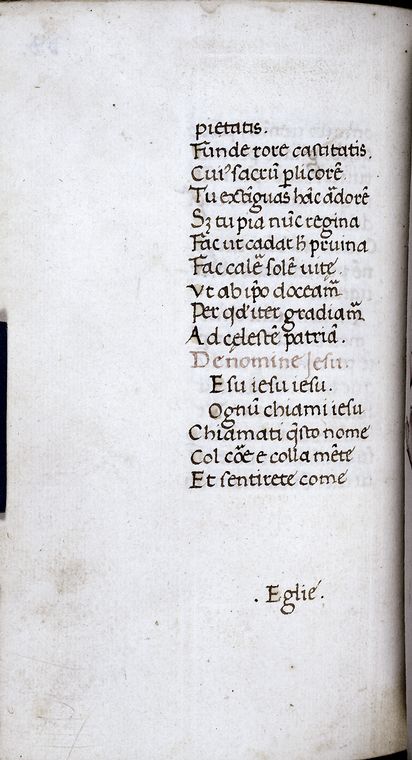 pietatis.
Funde rore castitatis.
Cuiꝰ sacrũ ꝑ licorẽ
Tu extĩguas hãc ãdorẽ
Sꝫ tu pia nũc regina
Fac ut cadat h̃ pruina
Fac calẽ solẽ uitę
Vt ab ip̃o doceam̃
Per qd' iter gradiam̃
Ad cęlestẽ patriã.
De nomine Jesu.
Esu iesu iesu.
Ognũ chiami iesu
Chiamati q̃sto nome
Col cõe e colla mẽte
Et sentirete come
. Eglie .